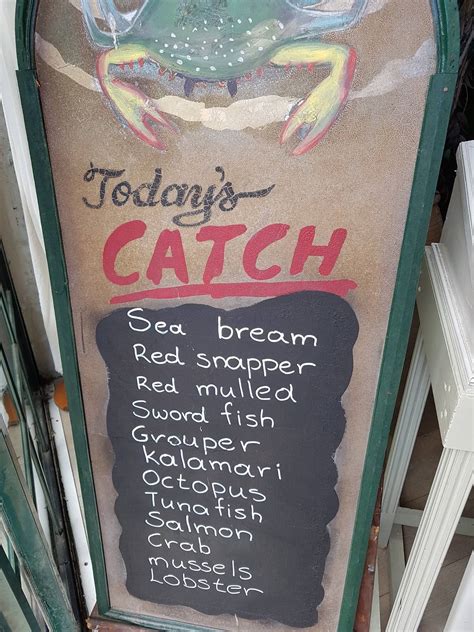 Today's
CATCH
Sea bream
Red snapper
Red mulled
Sword fish
Grouper
Kalamari
Octopus
Tunafish
Salmon
Crab
mussels
Lobster